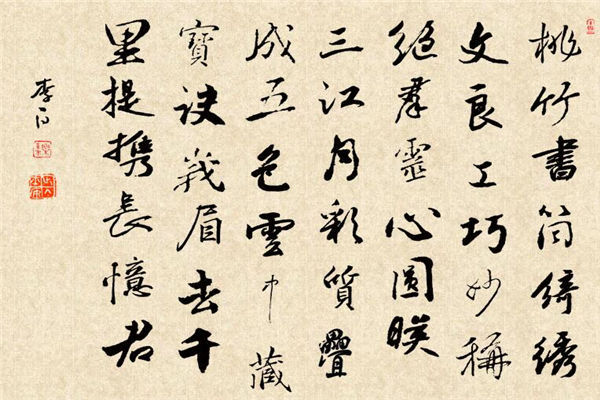 桃竹書筒綺繡
文良工巧妙稱
絕羣靈心圓暎
三江月彩質疊
成五色雲中藏
寶訣峩眉去千
里提携長憶君
李白